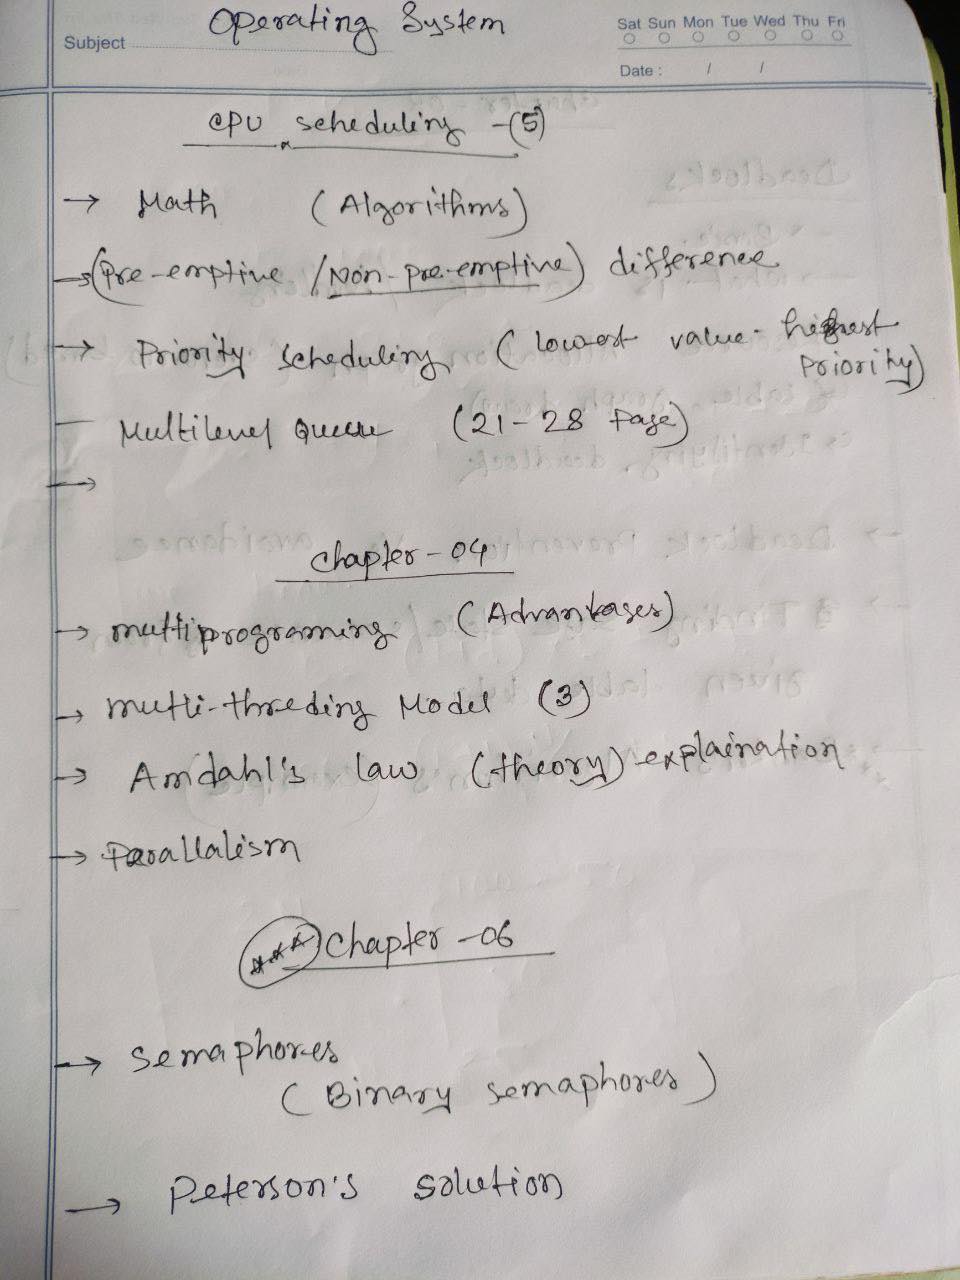 Operating System
Subject
Sat Sun Mon Tue Wed Thu Fri
Date : / /
CPU scheduling -(5)
→ Math (Algorithms)
→ (Pre-emptive / Non-pre-emptive) difference
→ Priority scheduling (lowest value- highest Priority)
— Multilevel Queue (21-28 Page)
→
Chapter-04
→ multiprograming (Advantages)
→ multi-threding Model (3)
→ Amdahl's law (theory) explaination
→ Parallalism
*** Chapter-06
→ semaphores
(Binary semaphores)
→ Peterson's solution